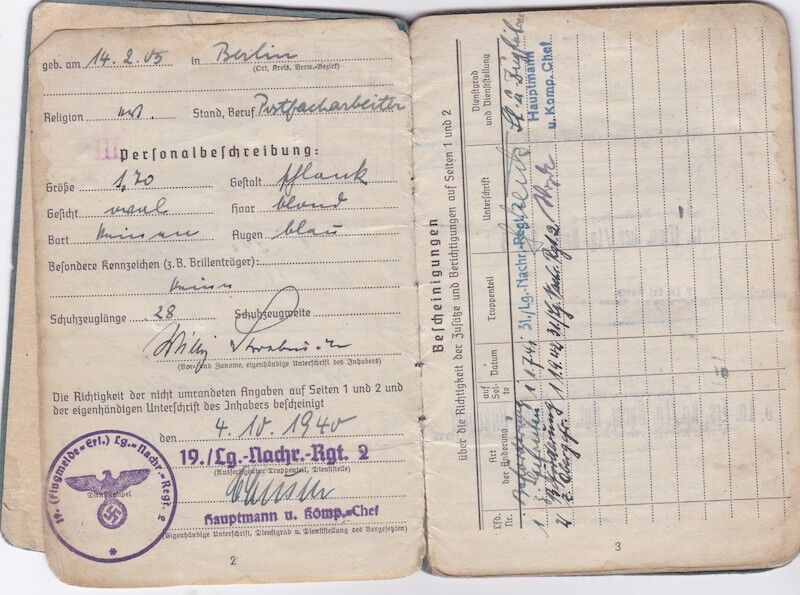 geb. am 14. 2. 05 in Berlin
(Ort, Kreis, Verw.-Bezirk)
Religion Stand, Beruf Postfacharbeiter
Personalbeschreibung:
Größe 1,70 Gestalt schlank
Gesicht oval Haar blond
Bart keinen Augen blau
Besondere Kennzeichen (z.B. Brillenträger):
keine
Schuhzeuglänge 28 Schuhzeugweite
Willy
(Vor- und Zuname, eigenhändige Unterschrift des Inhabers)
Die Richtigkeit der nicht umrandeten Angaben auf Seiten 1 und 2 und
der eigenhändigen Unterschrift des Inhabers bescheinigt
den 4. 10. 1940
19./Lg.-Nachr.-Rgt. 2
(Ausfertigender Truppenteil, Dienststelle)
Hauptmann u. Komp.-Chef
(Eigenhändige Unterschrift, Dienstgrad u. Dienststellung des Vorgesetzten)
19. (Flugmelde-Erf.) Lg.-Nachr.-Regt. 2
Dienststempel
2
Bescheinigungen
über die Richtigkeit der Zusätze und Berichtigungen auf Seiten 1 und 2
Lfd. Nr. Art der Änderung auf Seite Datum Truppenteil Unterschrift Dienstgrad und Dienststellung
1 Beförderung 1 1.7.41 31./Lg.-Nachr.-Regt. 2
z. Gefreiten
Hauptmann
u. Komp. Chef
2 Beförderung 1 1.9.42
z. Obergefr.
3